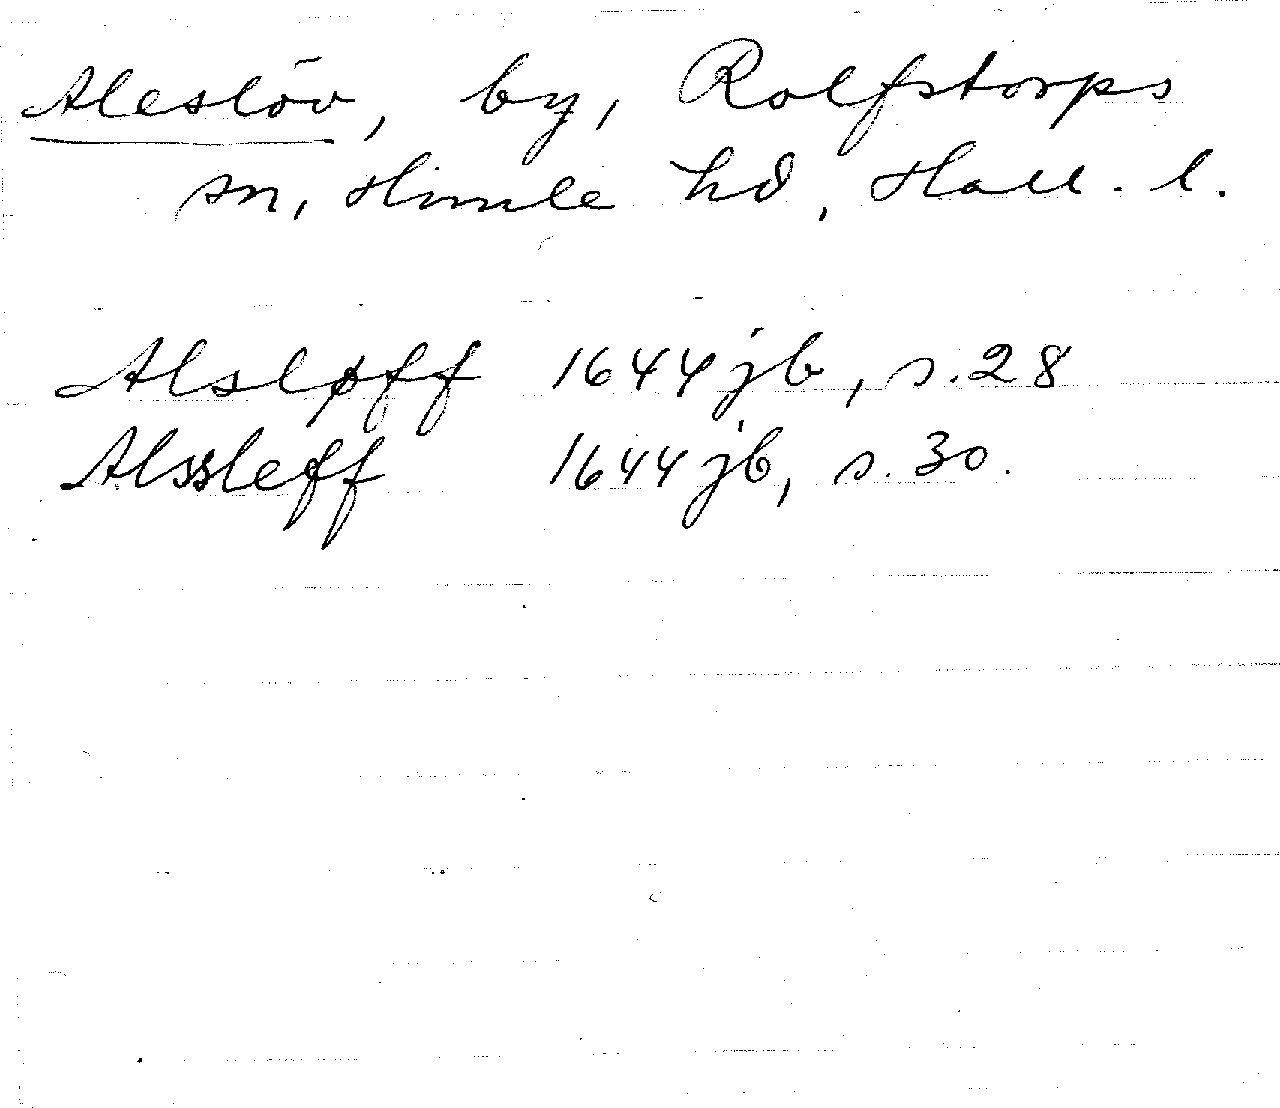 Aleslöv, by, Rolfstorps
sn, Himle hd, Hall. l.
Alsløff 1644 jb, s. 28
Alssleff 1644 jb, s. 30.